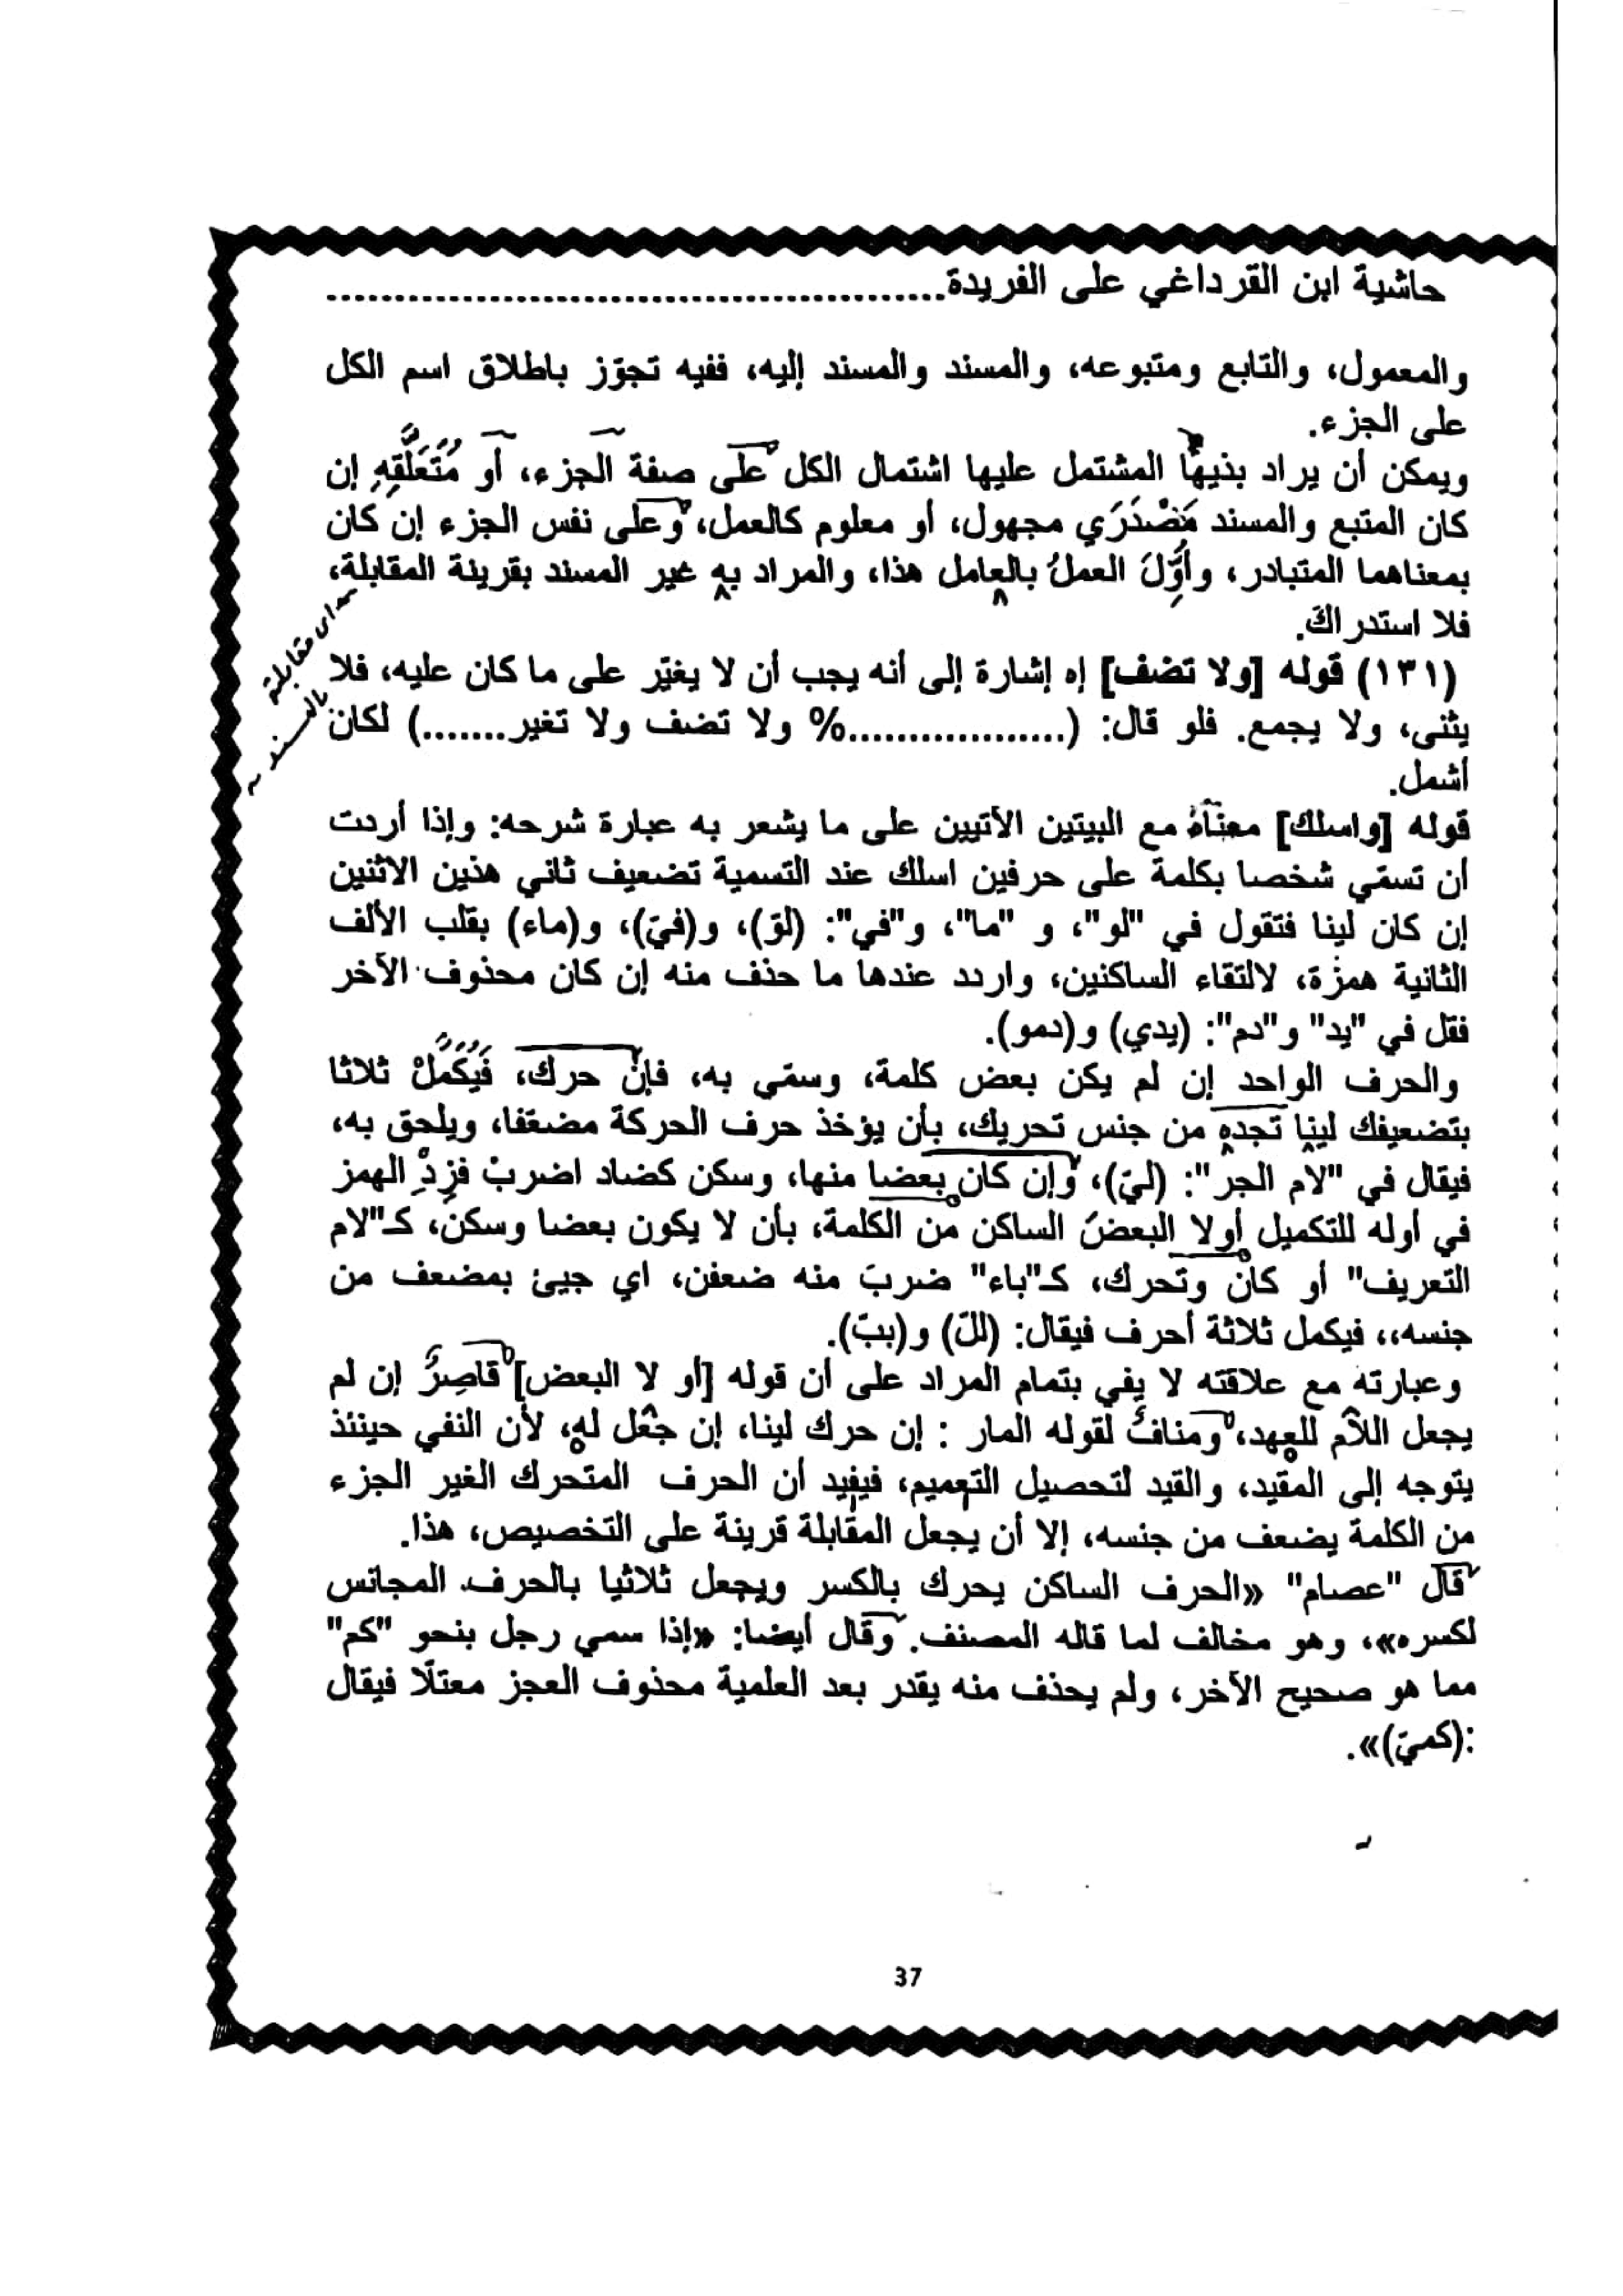 حاشية ابن القرداغي على الفريدة..............................................
والمعمول، والتابع ومتبوعه، والمسند والمسند إليه، ففيه تجوّز باطلاق اسم الكل
على الجزء.
ويمكن أن يراد بذيها المشتمل عليها اشتمال الكل على صفة الجزء، أو مُتَعَلَّقِهِ إن
كان المتبع والمسند مَصْدَرَي مجهول، أو معلوم كالعمل، وعلى نفس الجزء إن كان
بمعناهما المتبادر، وأُوِّلَ العملُ بالعامل هذا، والمراد به غير المسند بقرينة المقابلة،
فلا استدراك.
اى مقابلة
بالمسند
(١٣١) قوله [ولا تضف] إه إشارة إلى أنه يجب أن لا يغيّر على ما كان عليه، فلا
يثنى، ولا يجمع. فلو قال: (..................% ولا تضف ولا تغير.......) لكان
أشمل.
قوله [واسلك] معناه مع البيتين الآتيين على ما يشعر به عبارة شرحه: وإذا أردت
أن تسمّي شخصا بكلمة على حرفين اسلك عند التسمية تضعيف ثاني هذين الاثنين
إن كان لينا فتقول في "لو"، و "ما"، و"في": (لوّ)، و(فيّ)، و(ماء) بقلب الألف
الثانية همزة، لالتقاء الساكنين، واردد عندها ما حذف منه إن كان محذوف الآخر
فقل في "يد" و"دم": (يدي) و(دمو).
والحرف الواحد إن لم يكن بعض كلمة، وسمّي به، فإن حرك، فَيُكَمَّلْ ثلاثا
بتضعيفك لينا تجده من جنس تحريك، بأن يؤخذ حرف الحركة مضعّفا، ويلحق به،
فيقال في "لام الجر": (ليّ)، وإن كان بعضا منها، وسكن كضاد اضربْ فزِدِ الهمز
في أوله للتكميل أولا البعضُ الساكن من الكلمة، بأن لا يكون بعضا وسكن، كـ"لام
التعريف" أو كان وتحرك، كـ"باء" ضربَ منه ضعفن، اي جيئ بمضعف من
جنسه،، فيكمل ثلاثة أحرف فيقال: (للّ) و(ببّ).
وعبارته مع علاقته لا يفي بتمام المراد على أن قوله [أو لا البعض] قاصِرٌ إن لم
يجعل اللام للعهد، ومنافٍ لقوله المار : إن حرك لينا، إن جعل له، لأن النفي حينئذ
يتوجه إلى المقيد، والقيد لتحصيل التعميم، فيفيد أن الحرف المتحرك الغير الجزء
من الكلمة يضعف من جنسه، إلا أن يجعل المقابلة قرينة على التخصيص، هذا.
قال "عصام" «الحرف الساكن يحرك بالكسر ويجعل ثلاثيا بالحرف المجانس
لكسره»، وهو مخالف لما قاله المصنف. وقال أيضا: «إذا سمي رجل بنحو "كم"
مما هو صحيح الآخر، ولم يحذف منه يقدر بعد العلمية محذوف العجز معتلّا فيقال
:(كميّ)».
37